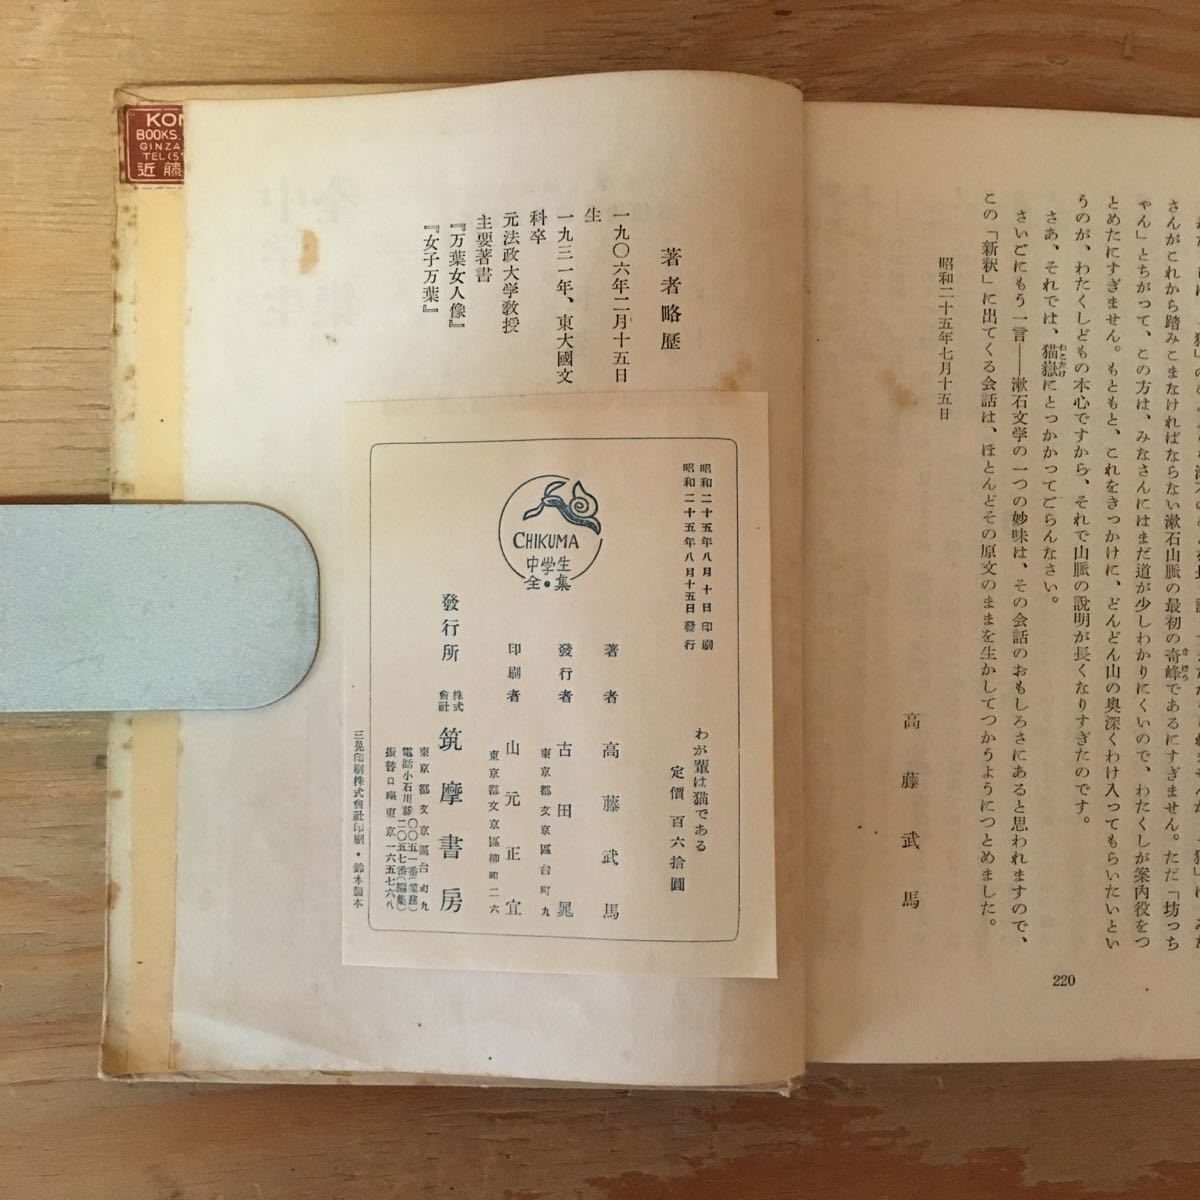 さんがこれから踏みこまなければならない漱石山脈の最初の奇峰であるにすぎません。ただ「坊っち
ゃん」とちがって、この方は、みなさんにはまだ道が少しわかりにくいので、わたくしが案内役をつ
とめたにすぎません。もともと、これをきっかけに、どんどん山の奥深くわけ入ってもらいたいとい
うのが、わたくしどもの本心ですから、それで山脈の説明が長くなりすぎたのです。
さあ、それでは、猫嶽にとっかかってごらんなさい。
さいごにもう一言——漱石文学の一つの妙味は、その会話のおもしろさにあると思われますので、
この「新釈」に出てくる会話は、ほとんどその原文のままを生かしてつかうようにつとめました。
昭和二十五年七月十五日
高藤武馬
220
著者略歴
一九〇六年二月十五日
生
一九三一年、東大國文
科卒
元法政大学教授
主要著書
『万葉女人像』
『女子万葉』
わが輩は猫である
定價 百六拾圓
昭和二十五年八月十日印刷
昭和二十五年八月十五日發行
著者 高藤武馬
東京都文京區台町九
發行者 古田晁
東京都文京區柳町二六
印刷者 山元正宜
發行所 株式會社 筑摩書房
東京都文京區台町九
電話小石川(85)〇〇五一番(業務)
二〇五七番(編集)
振替口座東京一六五七六八
三晃印刷株式會社印刷・鈴木製本
CHIKUMA
中学生
全・集
KON
BOOKS.
GINZA
TEL(5
近藤